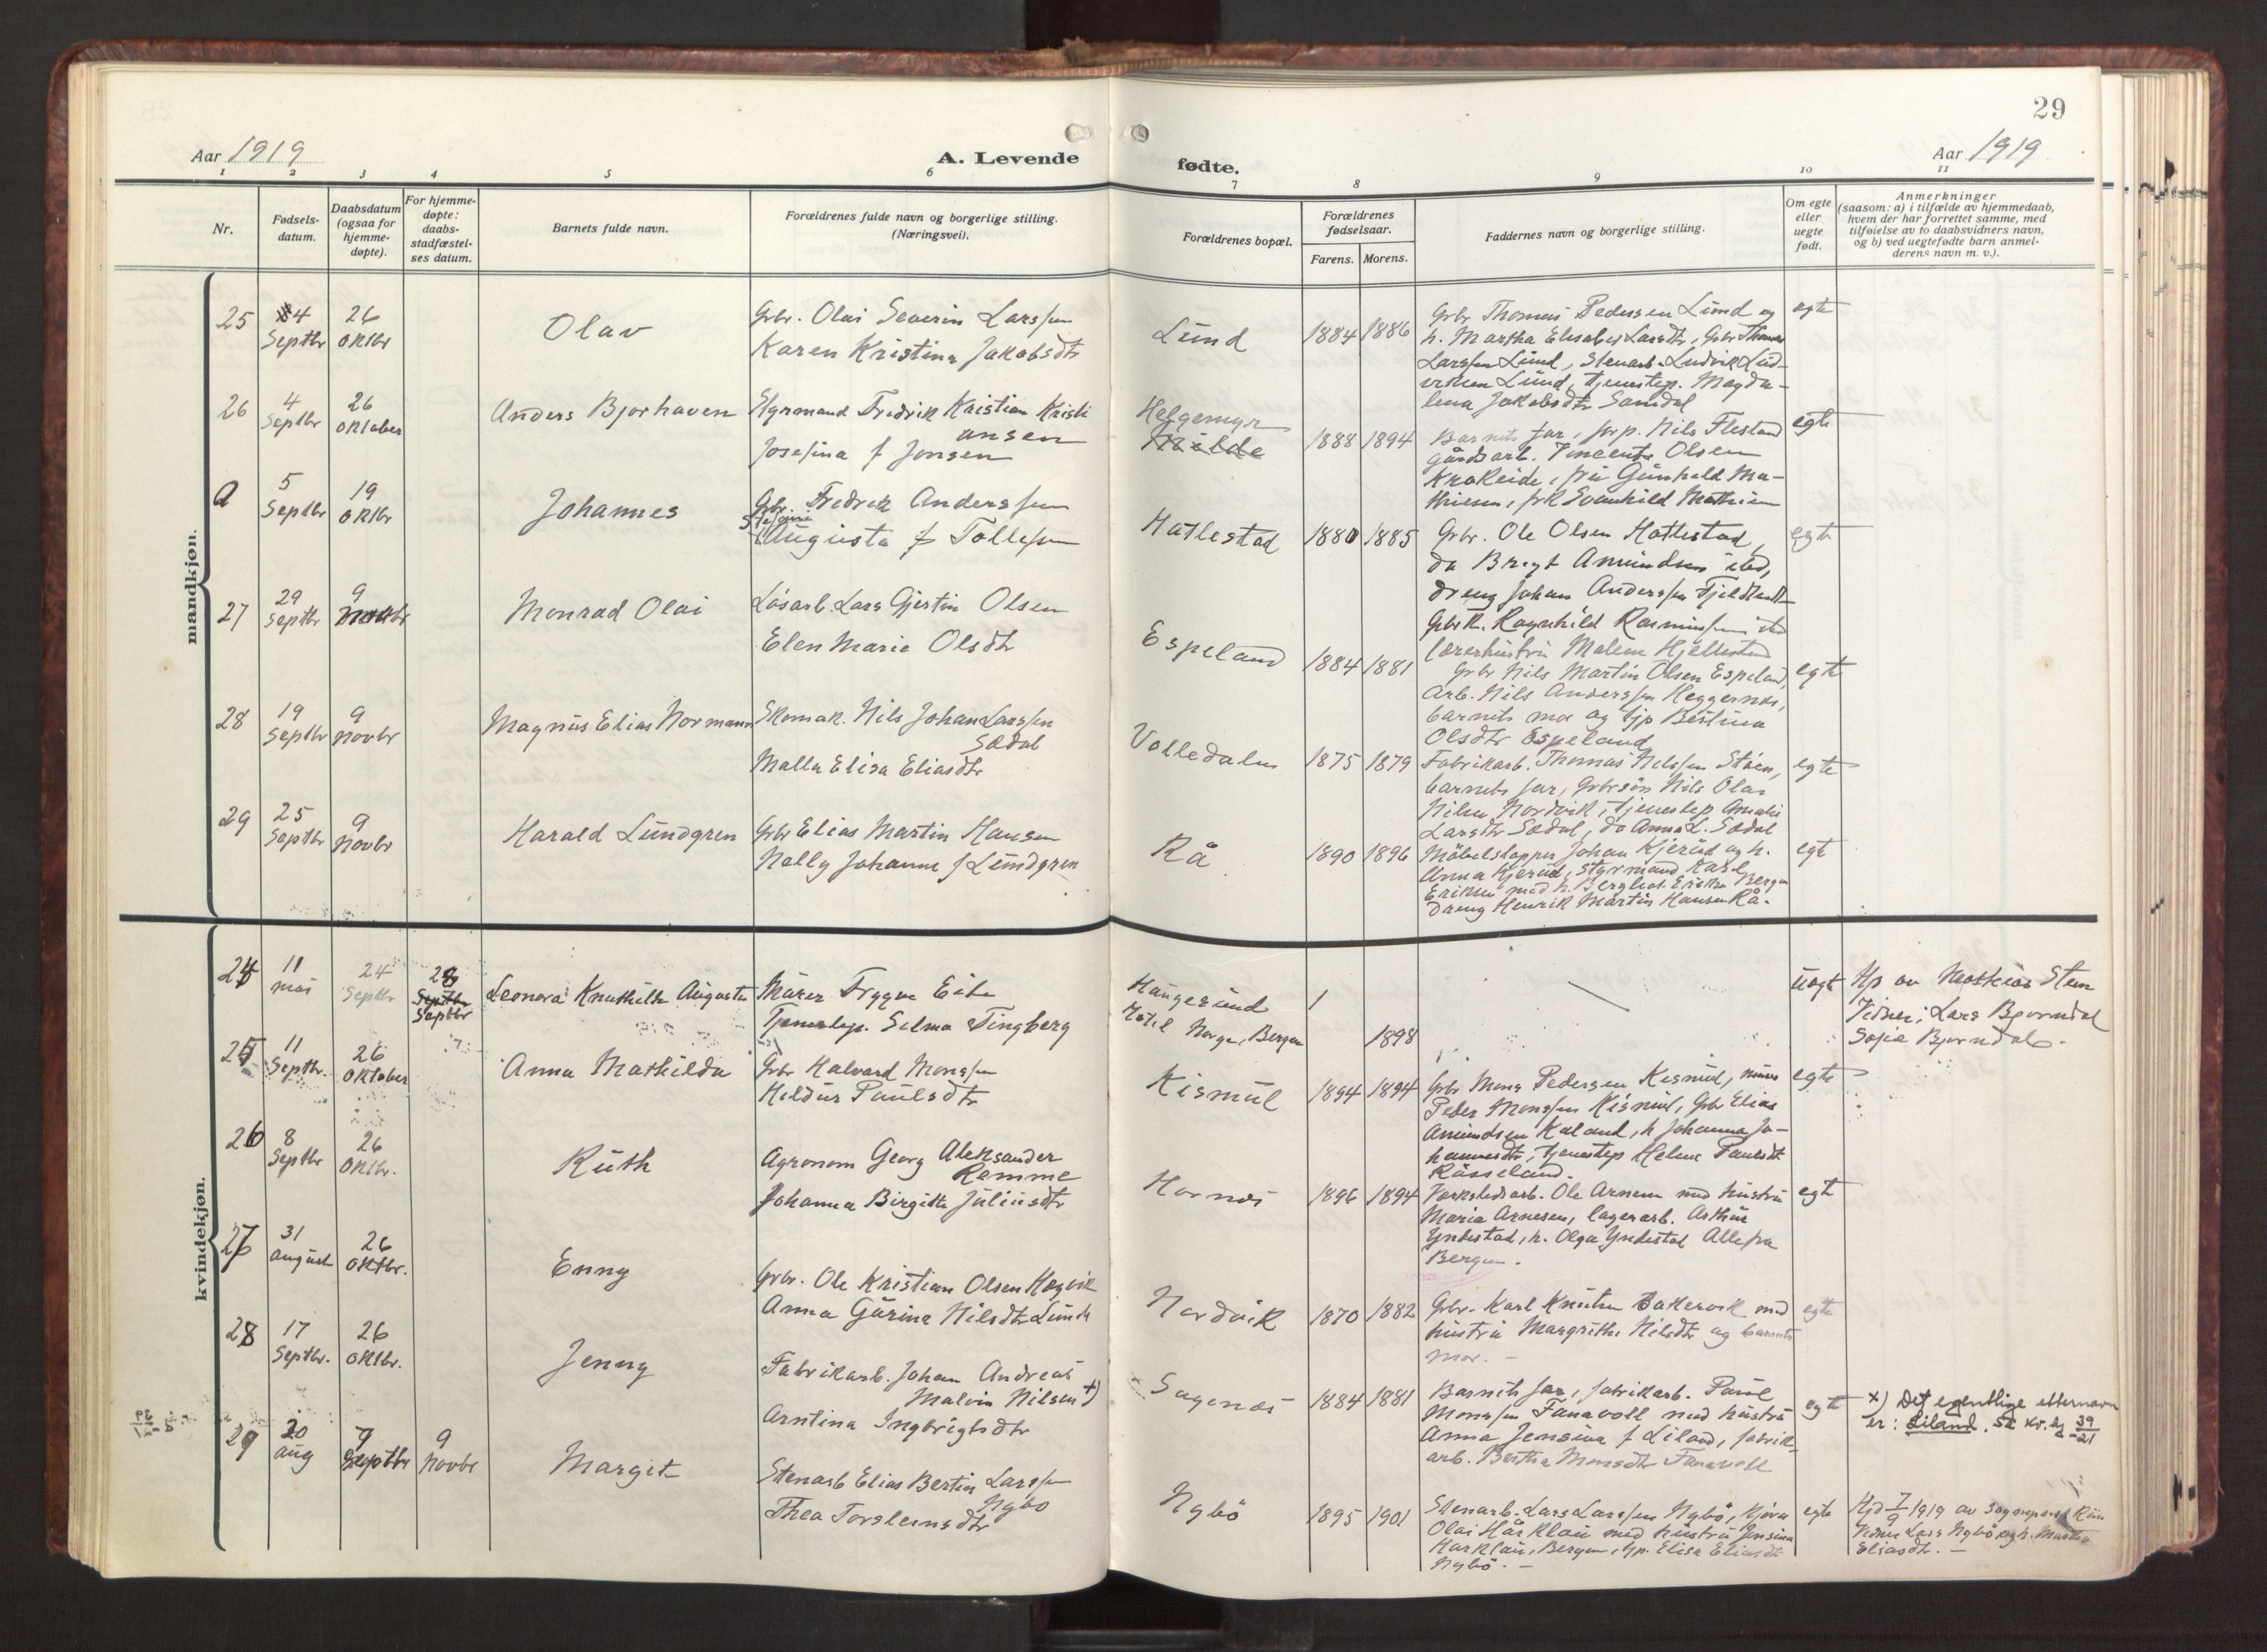 29
Aar 1919
A. Levende
fødte.
Aar 1919
1 2 3 4 5 6 7 8 9 10 11
Nr.
Fødsels-
datum.
Daabsdatum
(ogsaa for
hjemme-
døpte).
For hjemme-
døpte:
daabs-
stadfæstel-
ses datum.
Barnets fulde navn.
Forældrenes fulde navn og borgerlige stilling.
(Næringsvei).
Forældrenes bopæl.
Forældrenes
fødselsaar.
Farens. Morens.
Faddernes navn og borgerlige stilling.
Om egte
eller
uegte
født.
Anmerkninger
(saasom: a) i tilfælde av hjemmedaab,
hvem der har forrettet samme, med
tilføielse av to daabsvidners navn,
og b) ved uegtefødte barn anmel-
derens navn m. v.).
mandkjøn.
25
4
Septbr
26
Oktbr
Olav
Gbr. Olai Severin Larssen
Karen Kristina Jakobsdtr
Lund
1884 1886
Gbr Thomas Pedersen Lund og
h. Martha Elisabet Larsdtr, Gbr Thomas
Larssen Lund, Stenarb. Ludvik Lud-
viksen Lund, tjenestep. Magda-
lena Jakobsdtr Samdal
egte
26
4
Septbr
26
Oktober
Anders Bjorhaven
Styrmand Fredrik Kristian Kristi
ansen
Josefina f Jonsen
Helgemyr
Milde
1888 1894
Barnets far, Nils Flestad
gårdsarb. Vincents Olsen
Krokeide, fru Gunhild Ma-
thiesen, frk Svanhild Mathiesen
egte
a
5
Septbr
19
Oktbr
Johannes
Gbr. Fredrik Anderssen
Augusta f Tollefsen
Hatlestad
1880 1885
Gbr. Ole Olsen Hatlestad,
do Brigt Amundsen ibd,
dreng Johan Anderssen
Ragnhild Rasmussen ibd
lærerhustru Malene Hjellestad
egte
27
29
Septbr
9
Monrad Olai
Løsarb. Lars Gjertin Olsen
Elen Marie Olsdtr
Espeland
1884 1881
Gbr Nils Martin Olsen Espeland,
Arb. Nils Anderssen Heggernes,
barnets mor og tjp Bertina
Olsdtr Espeland
egte
28
19
Septbr
9
Novbr
Magnus Elias Normann
Skomak. Nils Johan Larssen
Sædal
Malla Elisa Eliasdtr
Volledalen
1875 1879
Fabrikarb. Thomas Nilssen Støen,
barnets far, Gbrsøn Nils Olai
Nilsen Nordvik, tjenestep Amalie
Larsdtr Sædal, do Anna L. Sædal
egte
29
25
Septbr
9
Novbr
Harald Lundgren
Gbr Elias Martin Hansen
Nelly Johanne f Lundgren
Rå
1890 1896
Møbelstapper Johan Kjerud og h.
Anna Kjerud, Styrmand Karl
Eriksen med h. Bergliot Eriksen Bergen
Dreng Henrik Martin Hansen Rå.
egte
kvindekjøn.
24
11
mai
24
Septbr
28
Septbr
Septbr
Leonora Knuthilde Augusta
Murer Trygve Eide
Tjenestep. Selma Tingberg
Haugesund
Hotel Norge, Bergen
1898
uegt
Hp av Mathias Stem
Vidner: Lars Bjørndal
Sofie Bjørndal.
25
11
Septbr.
26
Oktober
Anna Mathilde
Gbr Halvard Monssen
Hildur Paulsdtr
Kismul
1894 1894
Gbr Mons Pedersen Kismul, murer
Peder Monssen Kismul, Gbr Elias
Amundsen Kaland, h Johanna Jo-
hannesdtr, tjenestep Helene Paulsdtr
Råsseland.
egte
26
8
Septbr
26
Oktbr.
Ruth
Agronom Georg Aleksander
Remme
Johanna Birgitte Juliusdtr
Hornes
1896 1894
Verkstedsarb. Ole Arnesen med hustru
Maria Arnesen, lagerarb. Arthur
Yndestad, h. Olga Yndestad Alle fra
Bergen.
egt
27
31
august
26
Oktbr.
Enny
Gbr. Ole Kristian Olsen Hægvik
Anna Gurine Nilsdtr Lunde
Nordvik
1870 1882
Gbr. Karl Knutsen Bakervik med
hustru Margrithe Nilsdtr og barnets
mor.
egte
28
17
Septbr.
26
Oktbr.
Jenny
Fabrikarb. Johan Andreas
Malvin Nilsen +)
Arntina Ingbrigtsdtr
Sagenes
1884 1881
Barnets far, fabrikarb. Paul
Monssen Fanavoll med hustru
Anna Jensine f Liland, fabrik-
arb. Bertha Monsdtr Fanavoll
egte
x) Det egentlige etternavn
er: Liland. Se Kr. dg 39/21
29
20
aug
7
Septbr
9
Novbr
Margit
Stenarb Elias Bertin Larssen
Nybø
Thea Torsteinsdtr
Nybö
1895 1901
Stenarb. Lars Larssen Nybö,
Olai Hårklau med hustru Jensine
Harklau, Bergen, tjp. Elisa Eliasdtr
Nybö.
egte
Hjd 7/9 1919 av Sogneprest
Vidner Lars Nybö og h. Martha
Eliasdtr.